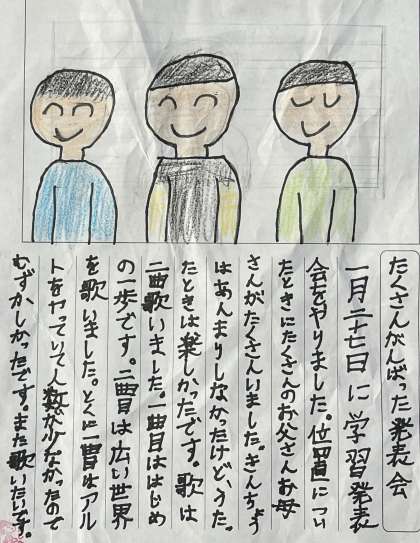 たくさんがんばった発表会
一月二十七日に学習発表
会をやりました。位置につい
たときにたくさんのお父さんお母
さんがたくさんいました。きんちょう
はあんまりしなかったけど、うた
たときは楽しかったです。歌は
二曲歌いました。一曲目ははじめ
の一歩です。二曲目は広い世界
を歌いました。とくに一曲目はアル
トをやっていて人数が少なかったので
むずかしかったです。また歌いたいです。